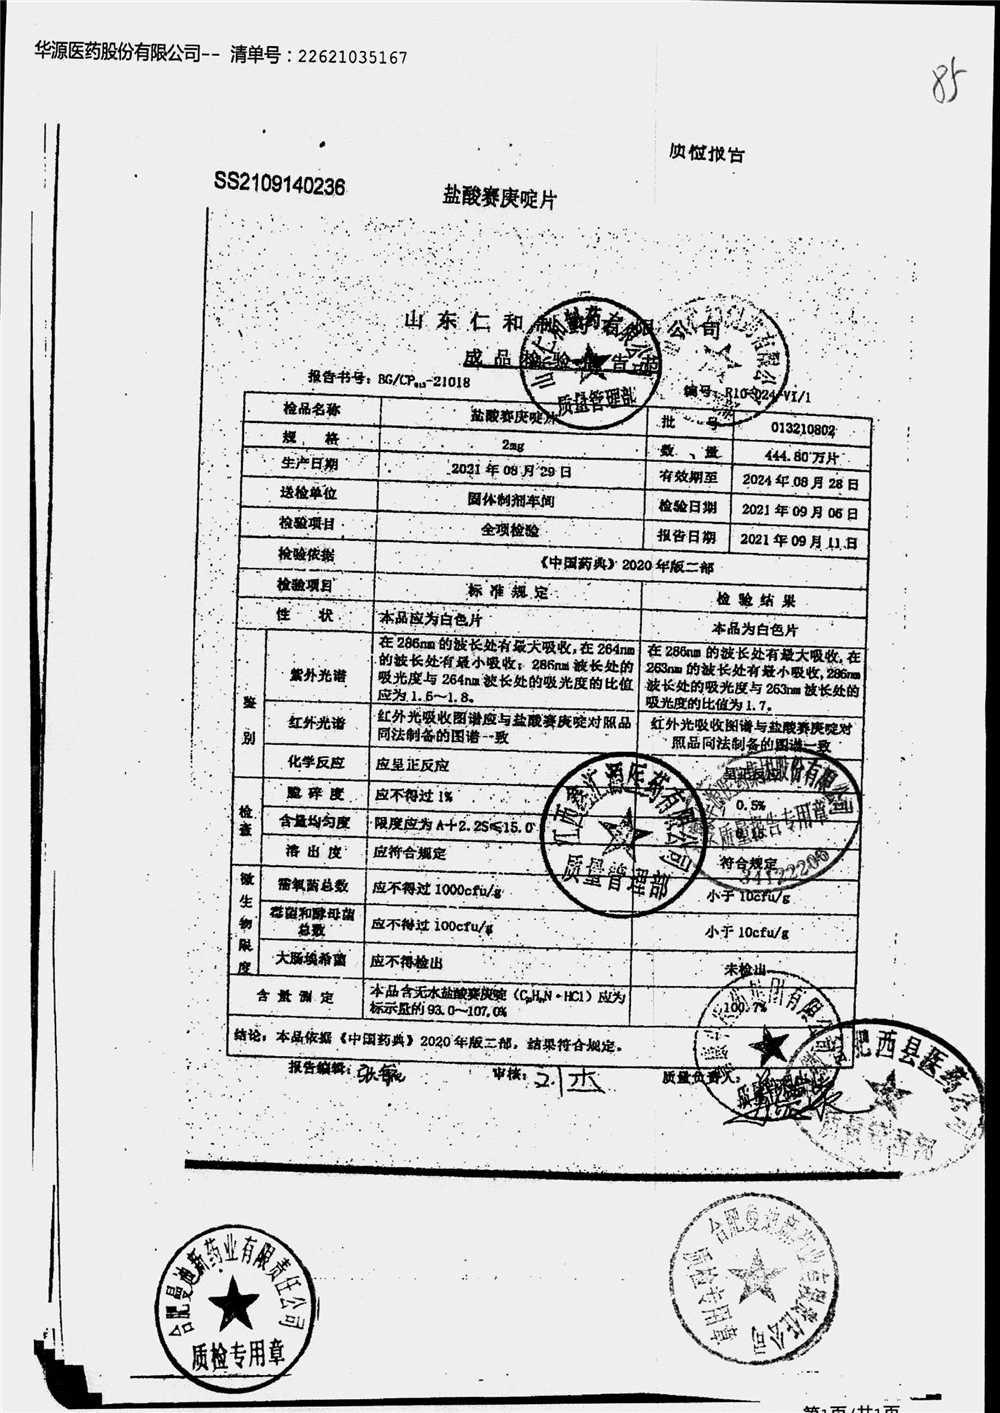 华源医药股份有限公司-- 清单号：22621035167
85
质检报告
SS2109140236
盐酸赛庚啶片
山东仁和制药有限公司
成品检验报告书
报告书号：BG/CP₀₁₃-21018
编号：R10-024-VI/1
检品名称 盐酸赛庚啶片 批 号 013210802
规 格 2mg 数 量 444.80万片
生产日期 2021年08月29日 有效期至 2024年08月28日
送检单位 固体制剂车间 检验日期 2021年09月06日
检验项目 全项检验 报告日期 2021年09月11日
检验依据 《中国药典》2020年版二部
检验项目 标准规定 检验结果
性 状 本品应为白色片 本品为白色片
鉴别
紫外光谱
在286nm的波长处有最大吸收，在264nm
的波长处有最小吸收；286nm波长处的
吸光度与264nm波长处的吸光度的比值
应为1.6～1.8。
在286nm的波长处有最大吸收，在
263nm的波长处有最小吸收，286nm
波长处的吸光度与263nm波长处的
吸光度的比值为1.7。
红外光谱
红外光吸收图谱应与盐酸赛庚啶对照品
同法制备的图谱一致
红外光吸收图谱与盐酸赛庚啶对
照品同法制备的图谱一致
化学反应 应呈正反应
检查
脆碎度 应不得过1% 0.5%
含量均匀度 限度应为A+2.2S≤15.0
溶出度 应符合规定 符合规定
微生物限度
需氧菌总数 应不得过1000cfu/g 小于10cfu/g
霉菌和酵母菌
总数
应不得过100cfu/g 小于10cfu/g
大肠埃希菌 应不得检出 未检出
含量测定
本品含无水盐酸赛庚啶（C₂₁H₂₁N·HCl）应为
标示量的93.0～107.0%
100.7%
结论：本品依据《中国药典》2020年版二部，结果符合规定。
报告编辑： 审核： 质量负责人：
质量管理部
江西汇源医药有限公司
质量管理部
质量报告专用章
合肥西县医药公司
合肥曼迪新药业有限责任公司
质检专用章
合肥曼迪新药业有限责任公司
质检专用章
第1页/共1页